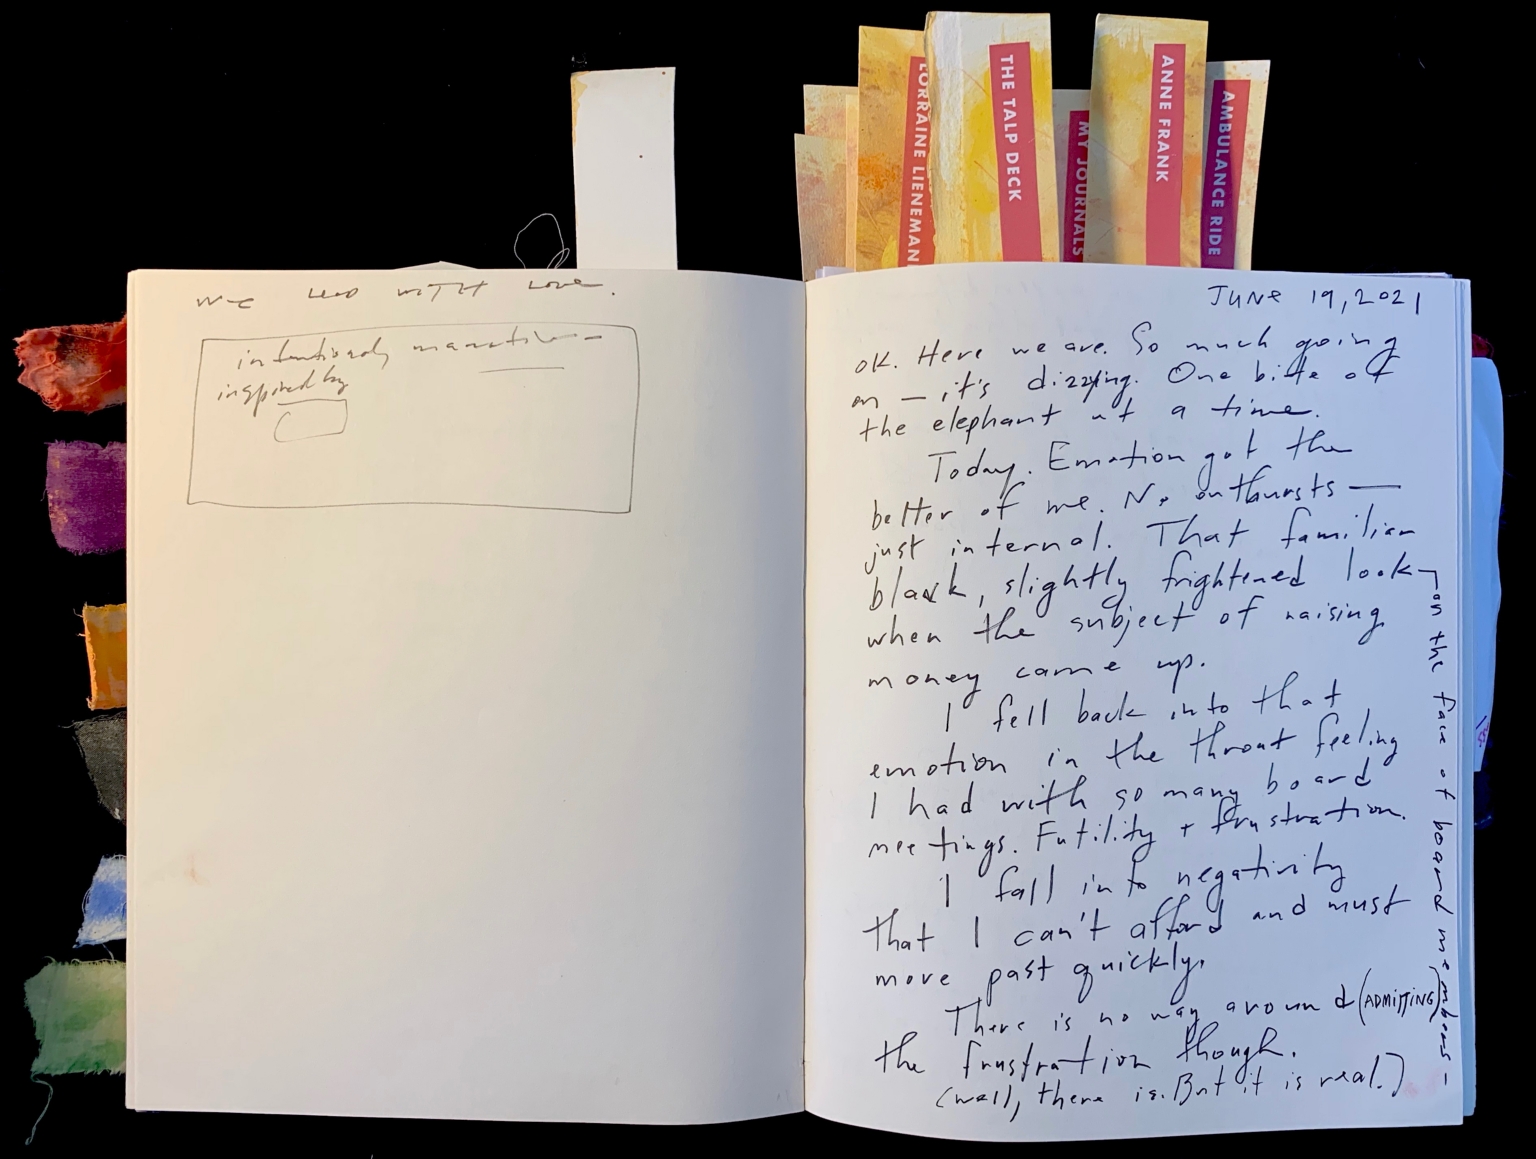 LORRAINE LIENEMAN
THE TALP DECK
MY JOURNALS
ANNE FRANK
AMBULANCE RIDE
We lead with love.
intentionally
inspired by
JUNE 19, 2021
OK. Here we are. So much going
on — it's dizzying. One bite of
the elephant at a time.
Today. Emotion got the
better of me. No outbursts —
just internal. That familiar
blank, slightly frightened look
when the subject of raising
money came up.
I fell back into that
emotion in the throat feeling
I had with so many board
meetings. Futility + frustration.
I fall into negativity
that I can't afford and must
move past quickly.
There is no way around (ADMITTING)
the frustration though.
(Well, there is. But it is real.)
on the face of board members —